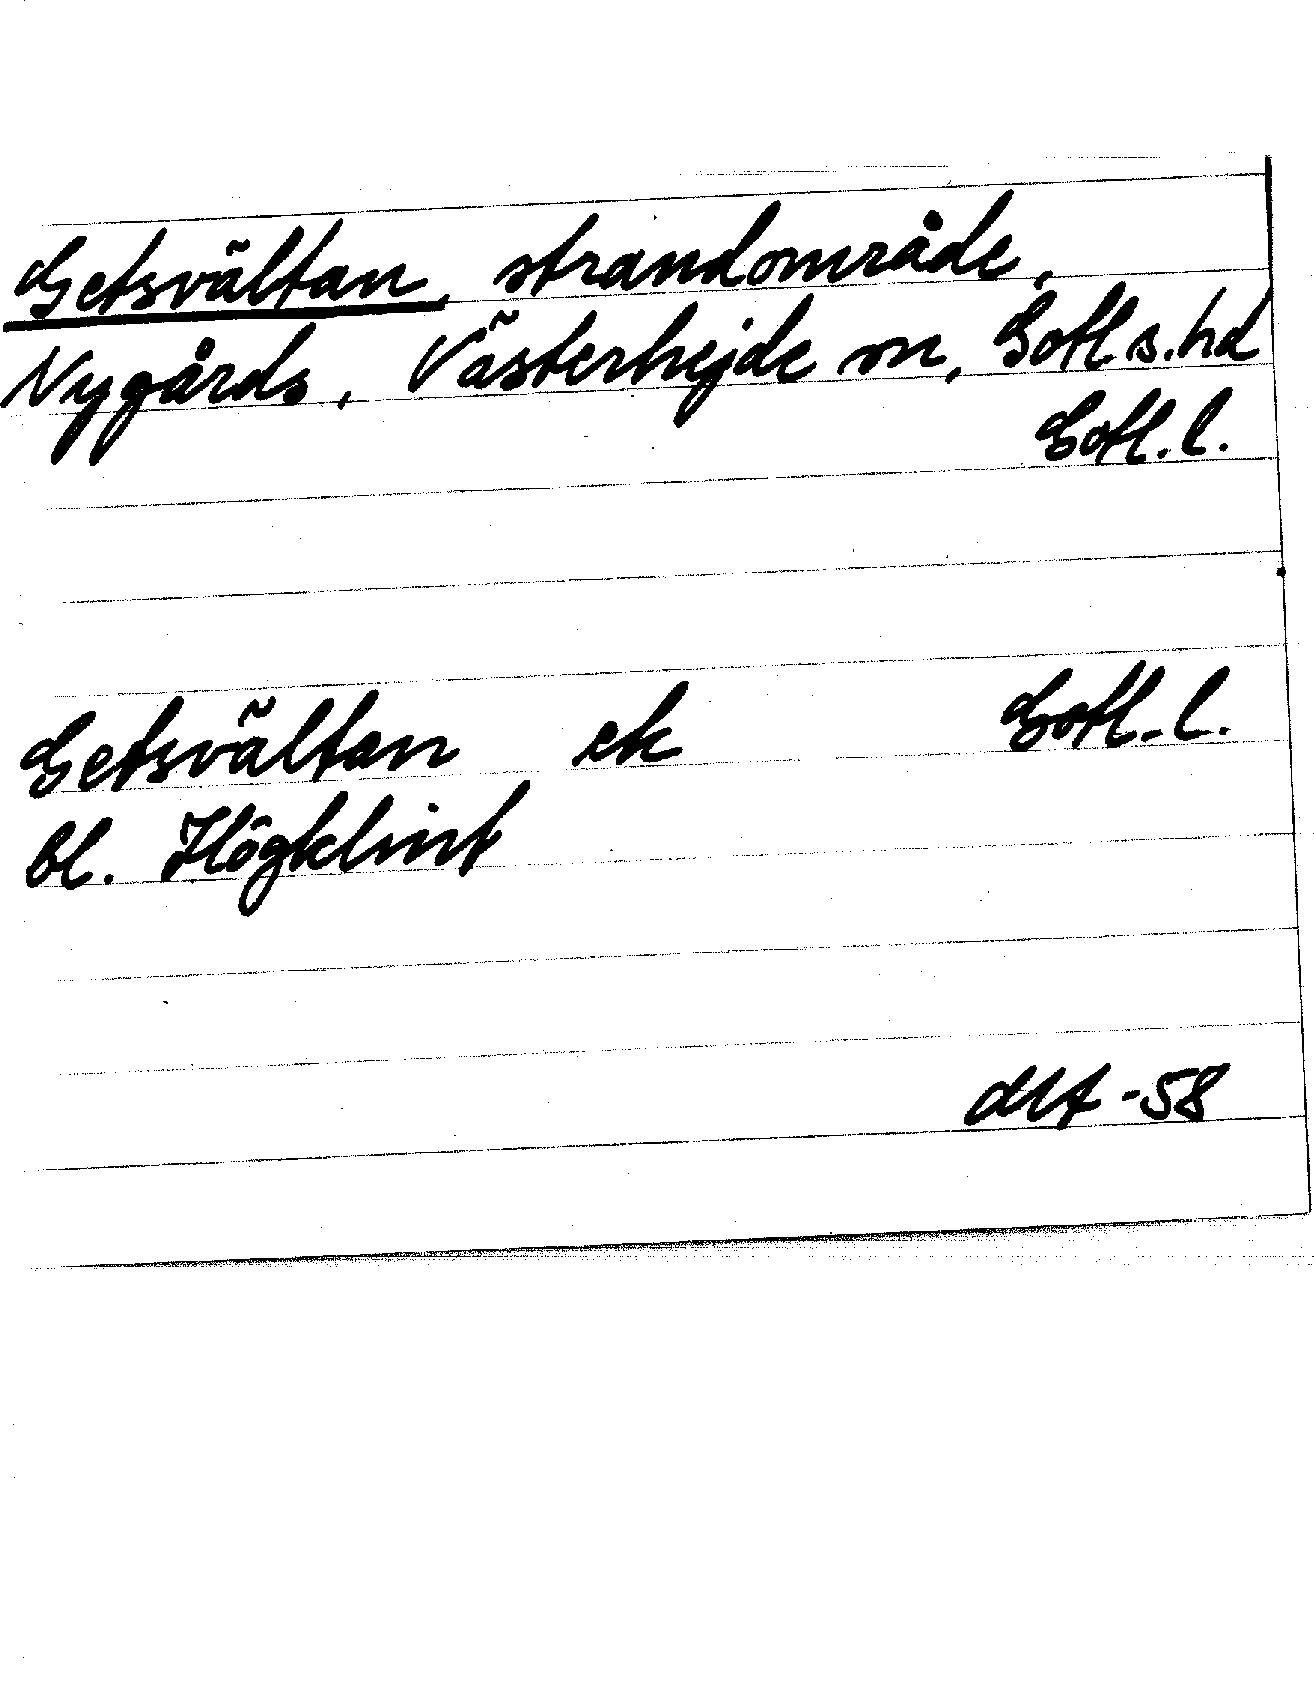 Getsvältan, strandområde,
Nygårds, Västerhejde sn, Gotl. s. hd
Gotl. l.
Getsvältan ek Gotl. l.
Bl. Högklint
-58